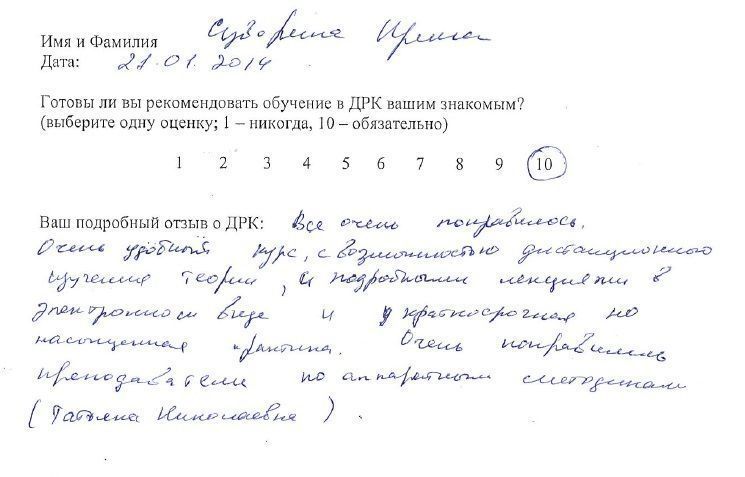 Имя и Фамилия Суворина Ирина
Дата: 21.01.2014
Готовы ли вы рекомендовать обучение в ДРК вашим знакомым?
(выберите одну оценку; 1 – никогда, 10 – обязательно)
1 2 3 4 5 6 7 8 9 10
Ваш подробный отзыв о ДРК: Все очень понравилось.
Очень удобный курс, с возможностью дистанционного
изучения теории, и подробными лекциями в
электронном виде и краткосрочная но
насыщенная практика. Очень понравились
преподаватели по аппаратным методикам
(Татьяна Николаевна).